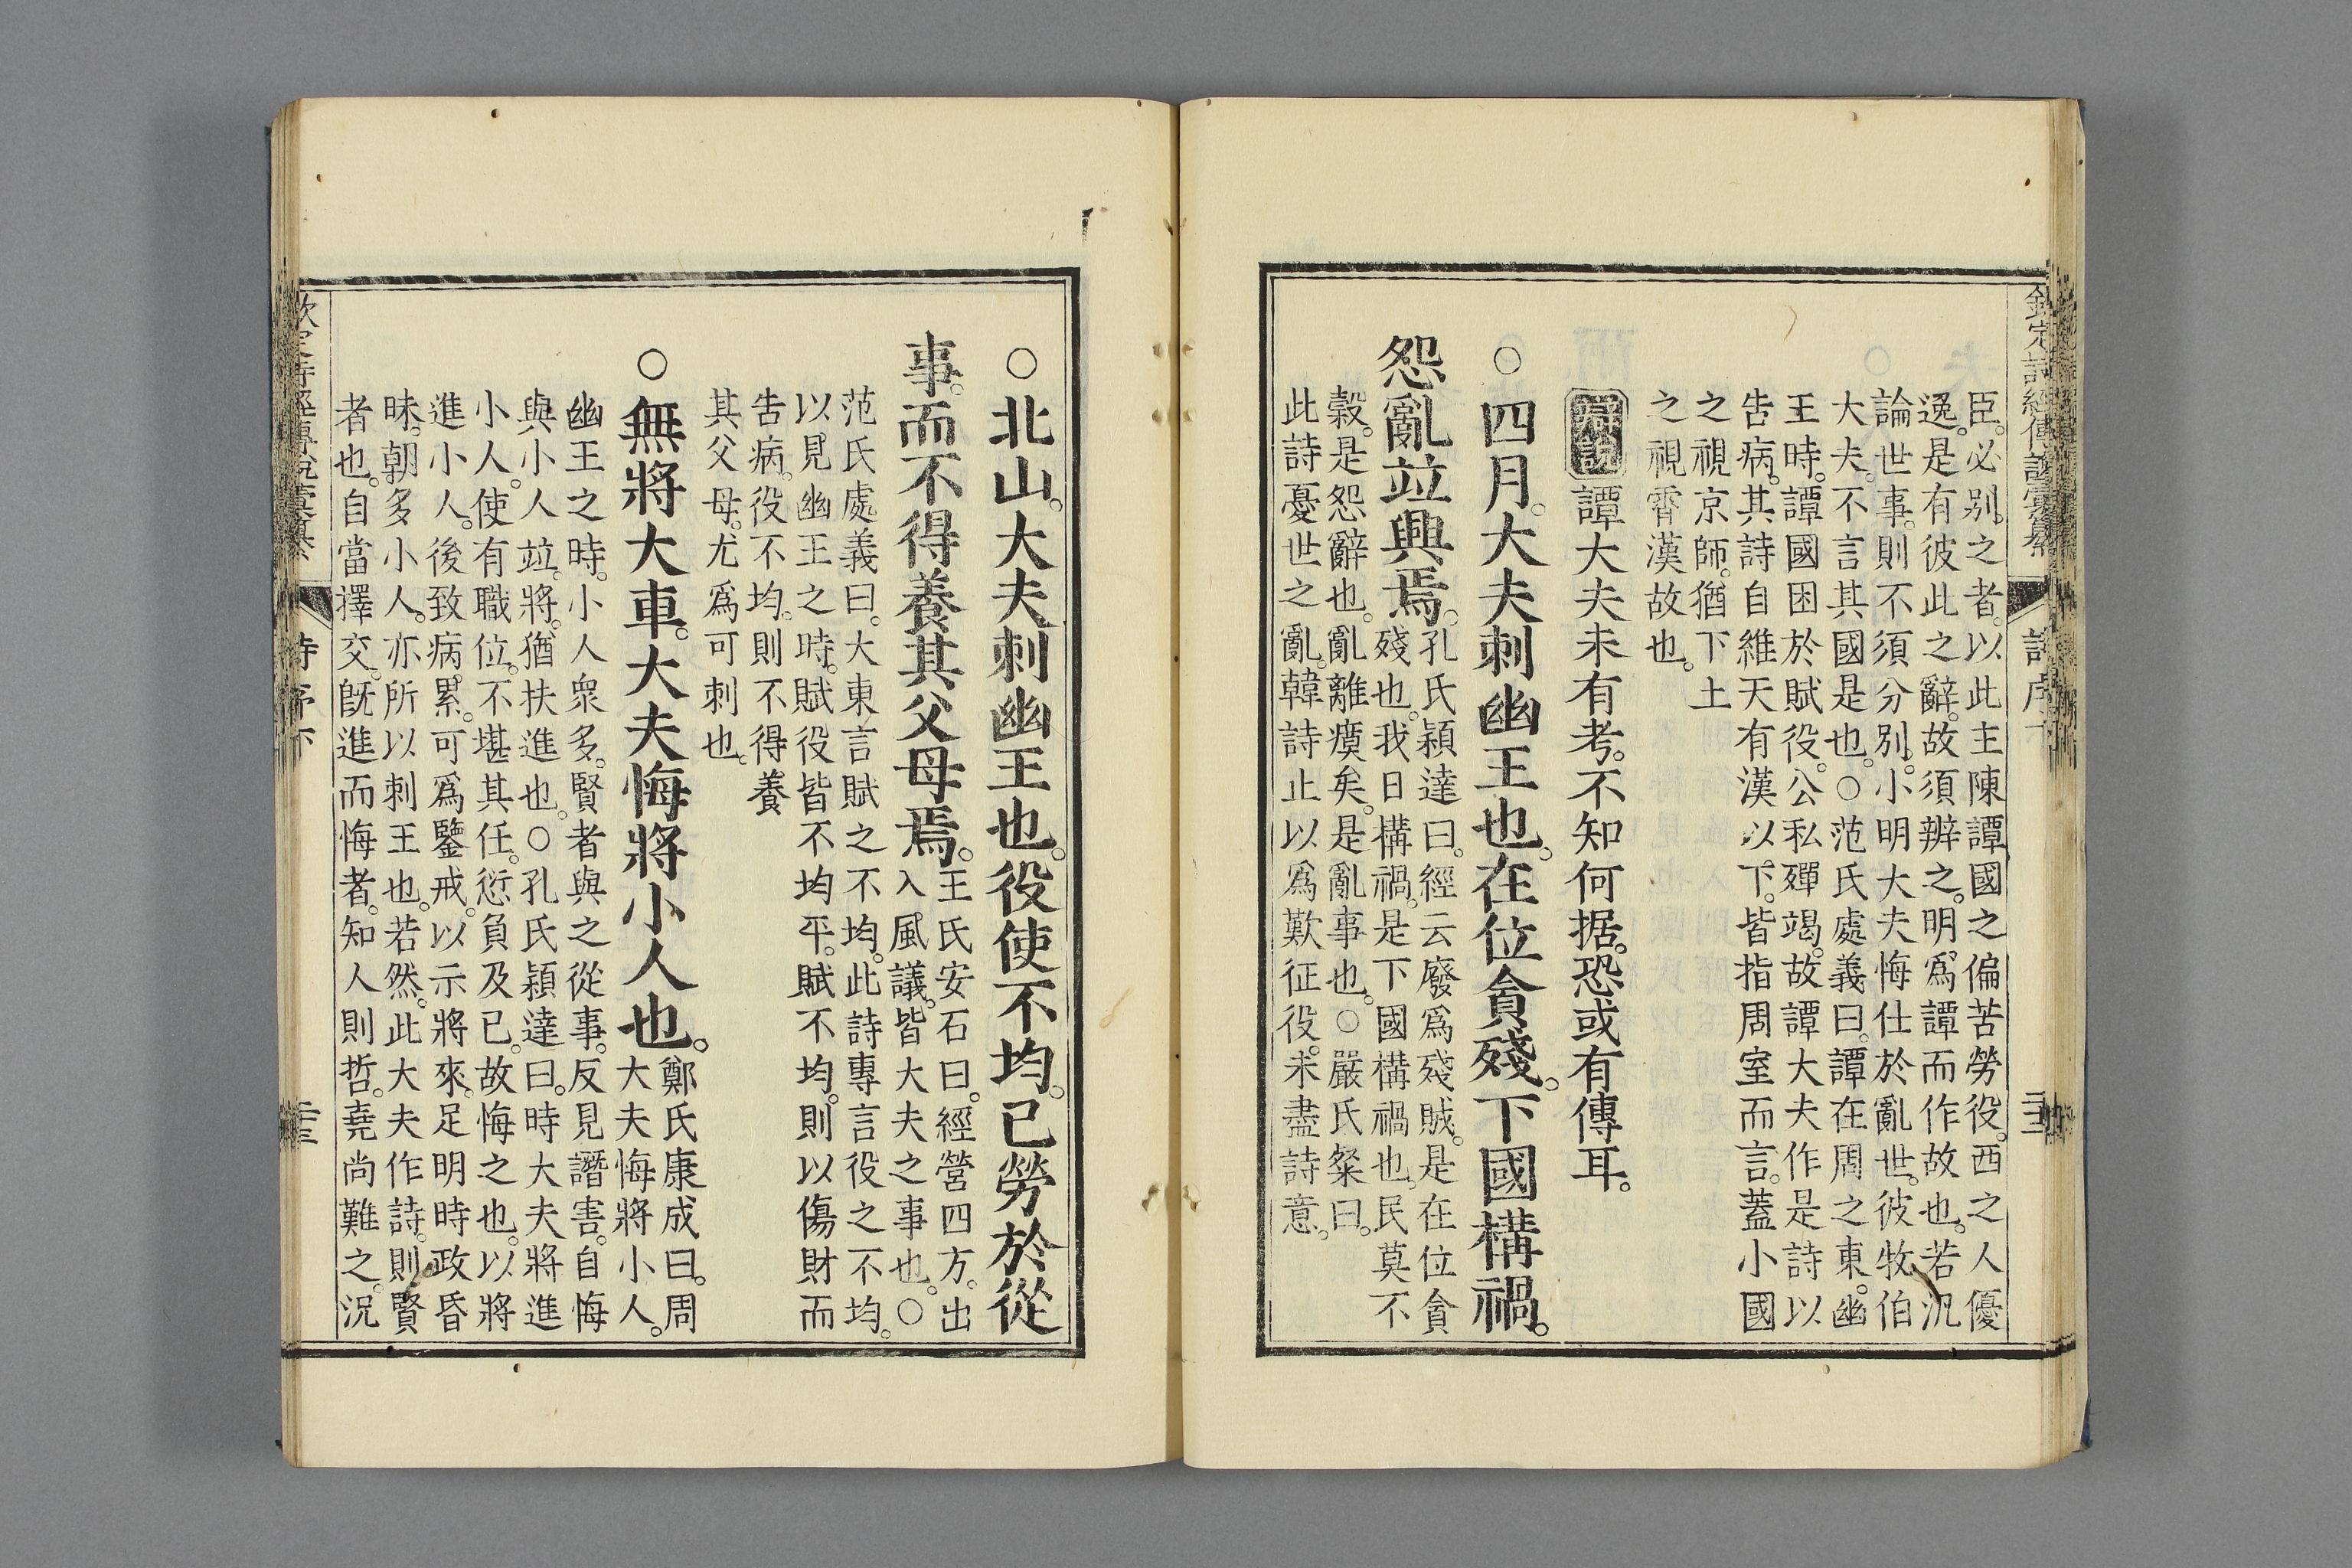 欽定詩經傳說彙纂
詩序下
臣。必别之者。以此主陳譚國之偏苦勞役。西之人優
逸。是有彼此之辭。故須辨之。明爲譚而作故也。若汎
論世事。則不須分别。小明大夫悔仕於亂世。彼牧伯
大夫。不言其國是也。○范氏處義曰。譚在周之東。幽
王時。譚國困於賦役。公私殫竭。故譚大夫作是詩以
告病。其詩自維天有漢以下。皆指周室而言。蓋小國
之視京師。猶下土
之視霄漢故也。
辯說譚大夫未有考。不知何据。恐或有傳耳。
○四月。大夫刺幽王也。在位貪殘。下國構禍。
怨亂竝興焉。孔氏穎達曰。經云廢爲殘賊。是在位貪
殘也。我日構禍。是下國構禍也。民莫不
穀。是怨辭也。亂離瘼矣。是亂事也。○嚴氏粲曰。
此詩憂世之亂。韓詩止以爲歎征役。未盡詩意。
○北山。大夫刺幽王也。役使不均。已勞於從
事。而不得養其父母焉。王氏安石曰。經營四方。出
入風議。皆大夫之事也。○
范氏處義曰。大東言賦之不均。此詩專言役之不均。
以見幽王之時。賦役皆不均平。賦不均。則以傷財而
告病。役不均。則不得養
其父母。尤爲可刺也。
○無將大車。大夫悔將小人也。鄭氏康成曰。周
大夫悔將小人。
幽王之時。小人衆多。賢者與之從事。反見譖害。自悔
與小人竝。將。猶扶進也。○孔氏穎達曰。時大夫將進
小人。使有職位。不堪其任。愆負及已。故悔之也。以將
進小人。後致病累。可爲鑒戒。以示將來。足明時政昏
昧。朝多小人。亦所以刺王也。若然。此大夫作詩。則賢
者也。自當擇交。旣進而悔者。知人則哲。堯尚難之。況
欽定詩經傳說彙纂
詩序下